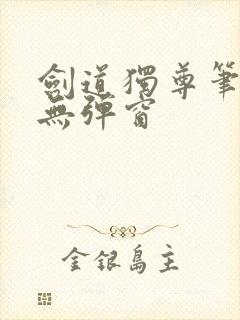 劍道獨尊筆
無彈窗
金銀島主